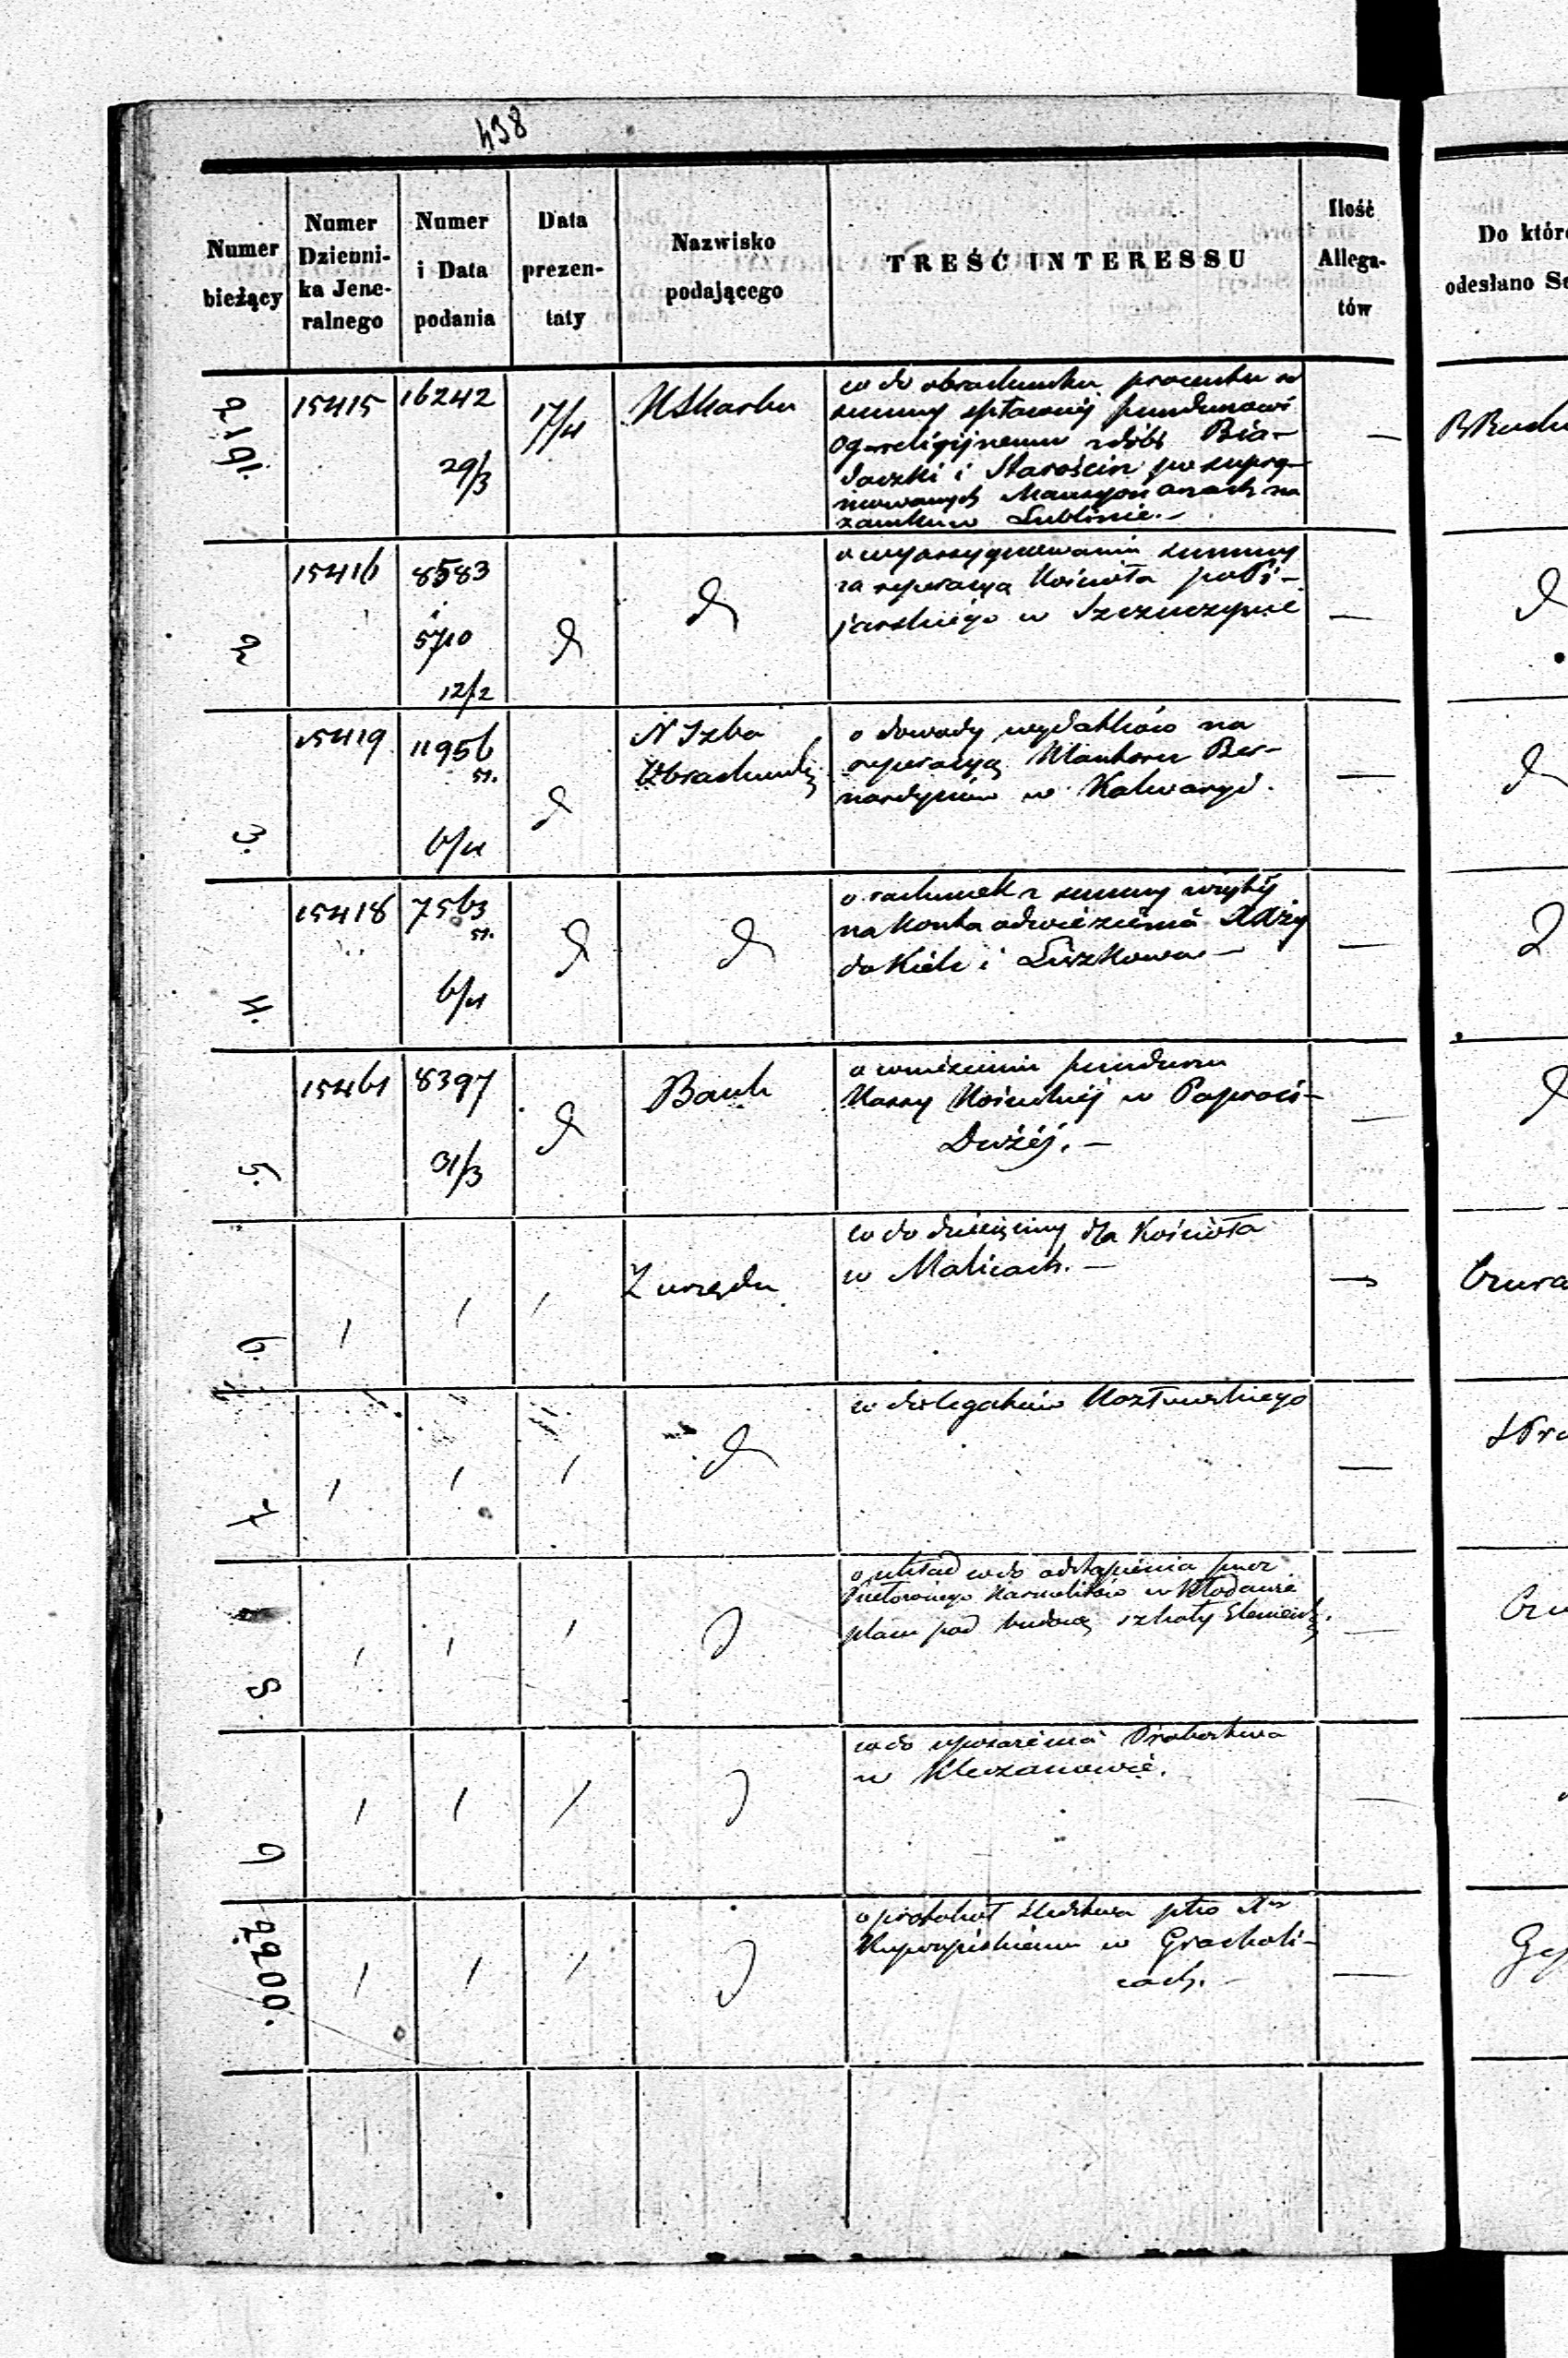 498
Numer bieżący
Numer Dziennika Jeneralnego
Numer i Data podania
Data prezentaty
Nazwisko podającego
TREŚĆ INTERESSU
Ilość Allegatów
Do któr
odesłano Se
2191.
15415
16242
29/3
17/4
KSkarbu
co do obrachunku procentu od
summy spłaconej funduszowi
Og-religijnemu z dóbr Bia-
daczki i Starościn po supry-
mowanych Mansyonarzach na
zamku w Lublinie.-
—
2
15416
8583
i
5710
12/2
d
d
o wyassygnowanie summy
za reperacyą Kościoła poPi-
jarskiego w Szczuczynie
—
d
3.
15419
11956
6/4
d
N Izba
Obrachunkę
o dowody wydatków na
reperacyą Klasztoru Ber-
nardynów w Kalwaryi.
—
d
4.
15418
7563
6/4
d
d
o rachunek z summy wziętej
na koszta odwiezienia XXży
do Kielc i Liszkowa —
—
5.
15461
8397
31/3
d
Bank
o wniesieniu funduszu
Kassy Kościelnej w Paproci-
Dużéj. —
—
d
6.
Z urzędu
co do dziesięciny dla Kościoła
w Malicach. —
—
7
d
Kozłowskiego
—
8
o układ co do odstąpienia przez
Karmelitów w Kłodawie
placu pod budowę szkoły Element.
—
9
co do uposażenia Probostwa
w Kleczanowie.
—
2200.
o protokół śledztwa pko Xu
w Grocholi-
cach. -
—